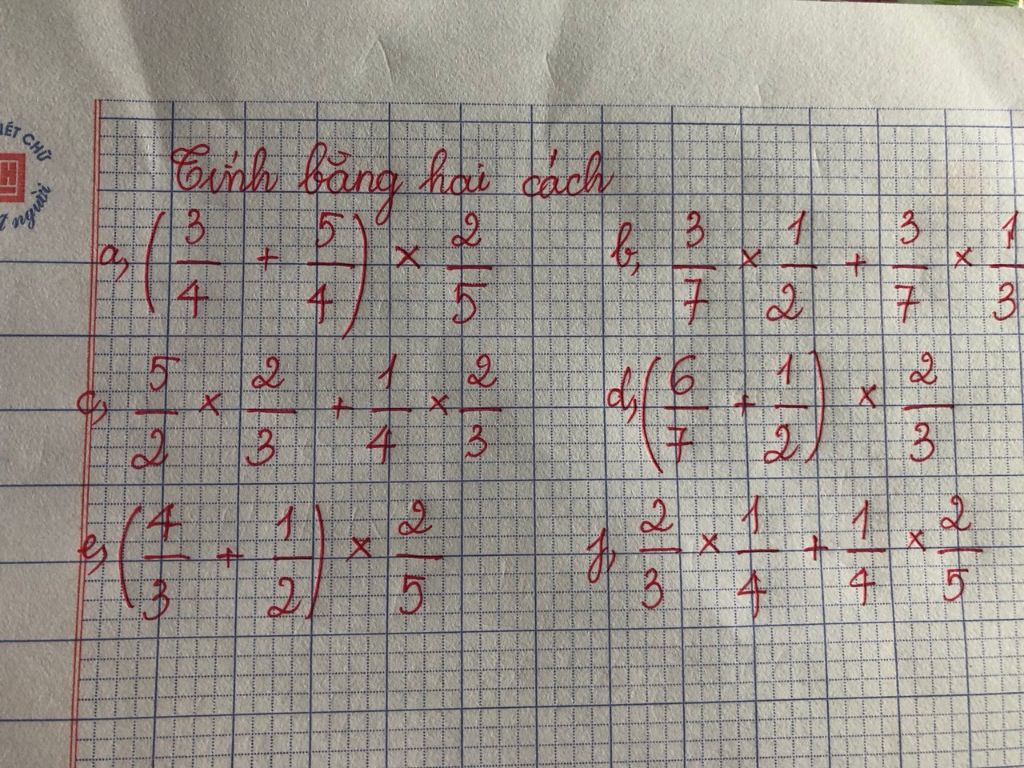 IẾT CHỮ
người
Tính bằng hai cách
a, (3/4 + 5/4) × 2/5 b, 3/7 × 1/2 + 3/7 × 1/3
c, 5/2 × 2/3 + 1/4 × 2/3 d, (6/7 + 1/2) × 2/3
e, (4/3 + 1/2) × 2/5 f, 2/3 × 1/4 + 1/4 × 2/5